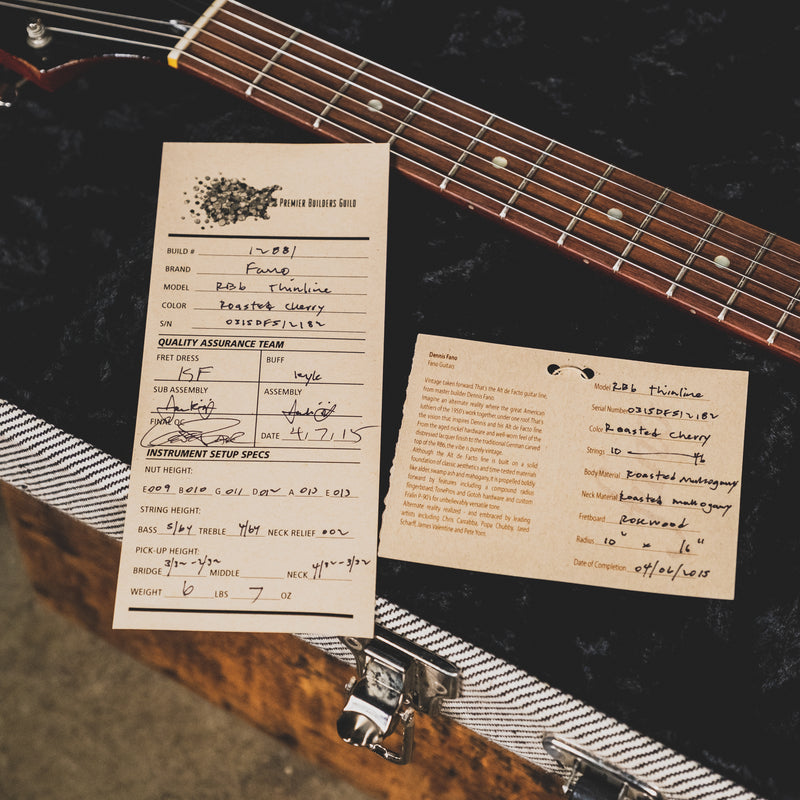 PREMIER BUILDERS GUILD
BUILD # 12881
BRAND Fano
MODEL RB6 Thinline
COLOR Roasted Cherry
S/N 0315DFS12182
QUALITY ASSURANCE TEAM
FRET DRESS BUFF
KF Kyle
SUB ASSEMBLY ASSEMBLY
FINAL QC DATE 4,7,15
INSTRUMENT SETUP SPECS
NUT HEIGHT:
E 009 B 010 G 011 D 012 A 013 E 013
STRING HEIGHT:
BASS 5/64 TREBLE 4/64 NECK RELIEF .002
PICK-UP HEIGHT:
BRIDGE 3/32 - 2/32 MIDDLE NECK 4/32 - 3/32
WEIGHT 6 LBS 7 OZ
Dennis Fano
Fano Guitars
Vintage taken forward. That's the Alt de Facto guitar line,
from master builder Dennis Fano.
Imagine an alternate reality where the great American
luthiers of the 1950's work together, under one roof. That's
the vision that inspires Dennis and his Alt de Facto line.
From the aged nickel hardware and well-worn feel of the
distressed lacquer finish to the traditional German carved
top of the RB6, the vibe is purely vintage.
Although the Alt de Facto line is built on a solid
foundation of classic aesthetics and time tested materials
like alder, swamp ash and mahogany, it is propelled boldly
forward by features including a compound radius
fingerboard, TonePros and Gotoh hardware and custom
Fralin P-90's for unbelievably versatile tone.
Alternate reality realized - and embraced by leading
artists including Chris Carrabba, Popa Chubby, Jared
Scharff, James Valentine and Pete Yorn.
Model RB6 Thinline
Serial Number 0315DFS12182
Color Roasted Cherry
Strings 10 — 46
Body Material Roasted Mahogany
Neck Material Roasted mahogany
Fretboard Rosewood
Radius 10" x 16"
Date of Completion 04/06/2015